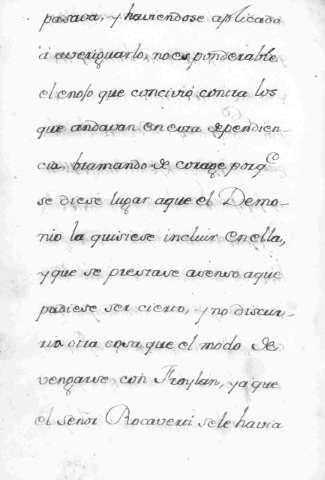 pasava, y haviendose aplicado
á averiguarlo, no es ponderable
el enojo que concivió contra los
que andavan en esta dependien-
cia bramando de corage porq.
se diese lugar aque el Demo-
nio la quisiese incluir en ella,
y que se prestase asenso aque
pudiese ser cierto, y no discur-
ria otra cosa que el modo de
vengarse con Froylan, ya que
el señor Rocaverti se le havia